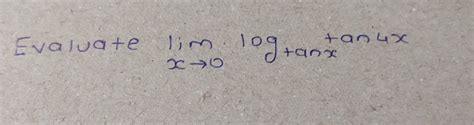 Evaluate lim x→0 log_{tanx} tan4x